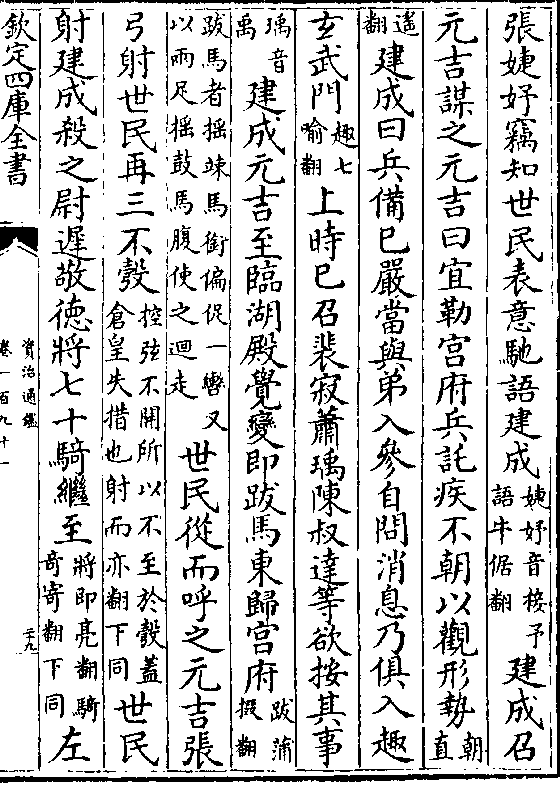 張婕妤竊知世民表意馳語建成婕妤音接予語牛倨翻建成召
元吉謀之元吉曰宜勒宫府兵託疾不朝以觀形勢朝直
遥翻建成曰兵備已嚴當與弟入參自問消息乃俱入趣
玄武門趣七喻翻上時已召裴寂蕭瑀陳叔達等欲按其事
瑀音禹建成元吉至臨湖殿覺變即跋馬東歸宫府跋蒲撥翻
跋馬者揺竦馬銜偏促一轡又以兩足揺鼓馬腹使之迴走世民從而呼之元吉張
弓射世民再三不彀控弦不開所以不至於彀蓋倉皇失措也射而亦翻下同世民
射建成殺之尉遲敬德將七十騎繼至將即亮翻騎奇寄翻下同左
欽定四庫全書
資治通鑑
卷一百九十一
二十九